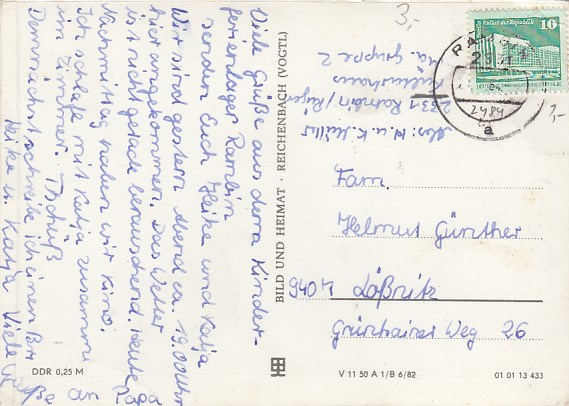 3,-
Viele Grüße aus dem Kinder-
ferienlager Rambin
senden Euch Heike und Katja
Wir sind gestern Abend ca. 19.00 Uhr
hier angekommen. Das Wetter
ist nicht gerade berauschend. Heute
Nachmittag haben wir Kino.
Ich schlafe mit Katja zusammen
im Zimmer. Tschüß
Demnächst schreibe ich einen
Heike u. Katja Viele
an
DDR 0,25 M
BILD UND HEIMAT · REICHENBACH (VOGTL)
Abs: H. u. K. Müller
2331 Rambin/Rügen
Gruppe 2
Palast der Republik 10
DDR
2,-
a
Fam.
Helmut Günther
9404 Lößnitz
Grünhainer Weg 26
V 11 50 A 1/B 6/82
01 01 13 433